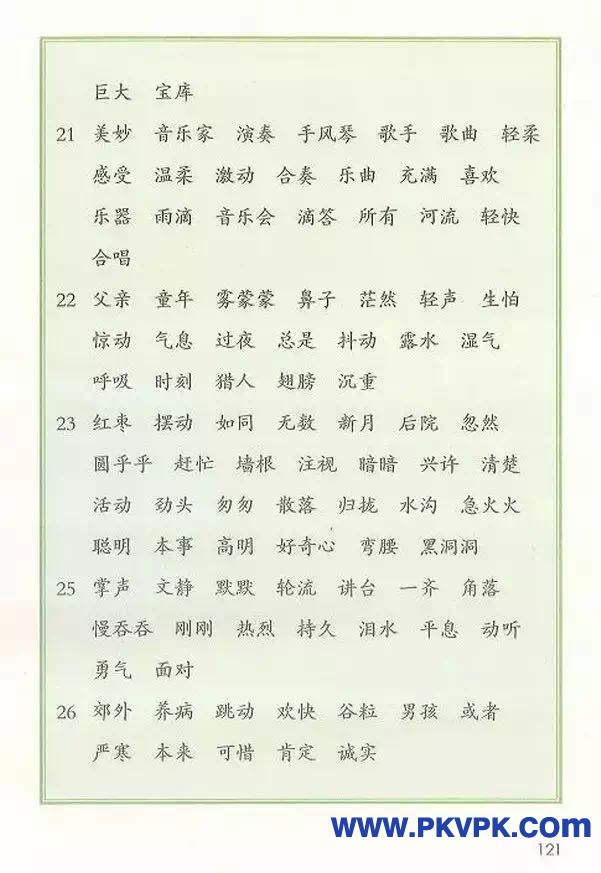 巨大 宝库
21 美妙 音乐家 演奏 手风琴 歌手 歌曲 轻柔
感受 温柔 激动 合奏 乐曲 充满 喜欢
乐器 雨滴 音乐会 滴答 所有 河流 轻快
合唱
22 父亲 童年 雾蒙蒙 鼻子 茫然 轻声 生怕
惊动 气息 过夜 总是 抖动 露水 湿气
呼吸 时刻 猎人 翅膀 沉重
23 红枣 摆动 如同 无数 新月 后院 忽然
圆乎乎 赶忙 墙根 注视 暗暗 兴许 清楚
活动 劲头 匆匆 散落 归拢 水沟 急火火
聪明 本事 高明 好奇心 弯腰 黑洞洞
25 掌声 文静 默默 轮流 讲台 一齐 角落
慢吞吞 刚刚 热烈 持久 泪水 平息 动听
勇气 面对
26 郊外 养病 跳动 欢快 谷粒 男孩 或者
严寒 本来 可惜 肯定 诚实
www.PKVPK.com
121